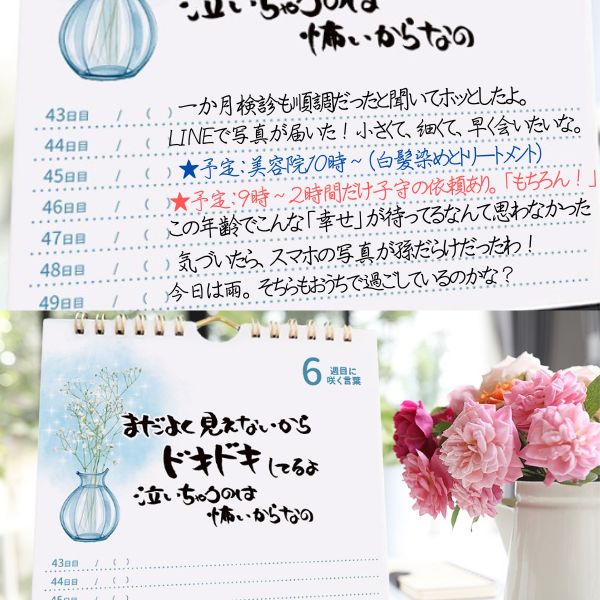 泣いちゃうのは
怖いからなの
43日目 / ( ) 一か月検診も順調だったと聞いてホッとしたよ。
44日目 / ( ) LINEで写真が届いた！小さくて、細くて、早く会いたいな。
45日目 / ( ) ★予定：美容院10時～（白髪染めとトリートメント）
46日目 / ( ) ★予定：9時～2時間だけ子守の依頼あり。「もちろん！」
47日目 / ( ) この年齢でこんな「幸せ」が待ってるなんて思わなかった
48日目 / ( ) 気づいたら、スマホの写真が孫だらけだったわ！
49日目 / ( ) 今日は雨。そちらもおうちで過ごしているのかな？
6週目に
咲く言葉
まだよく見えないから
ドキドキしてるよ
泣いちゃうのは
怖いからなの
43日目 / ( )
44日目 / ( )
45日目 / ( )